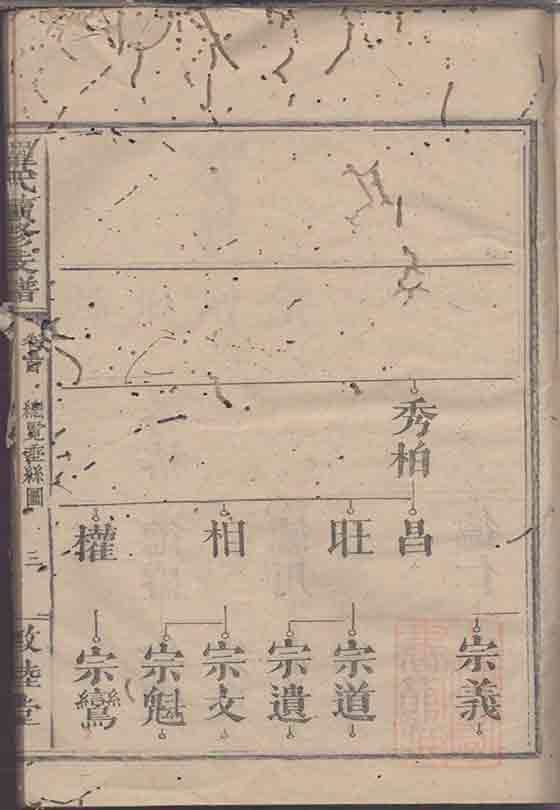 秀柏
昌
旺
相
權
宗義
宗道
宗遺
宗文
宗魁
宗鸞
氏續修支譜
卷首
總覽垂絲圖
三
敦睦堂